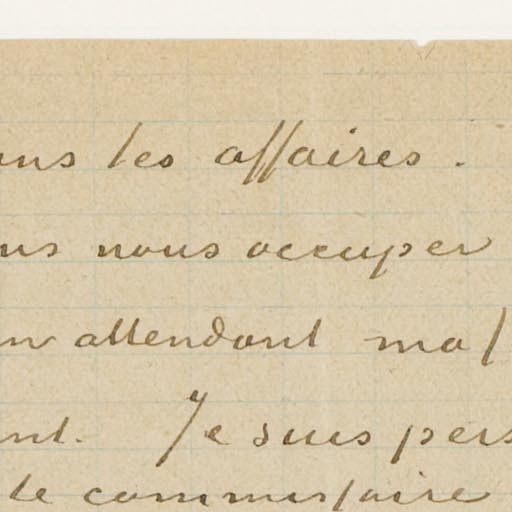 ans les affaires.
ns nous occuper
n attendant mal
nt. Je suis pers
le commissaire